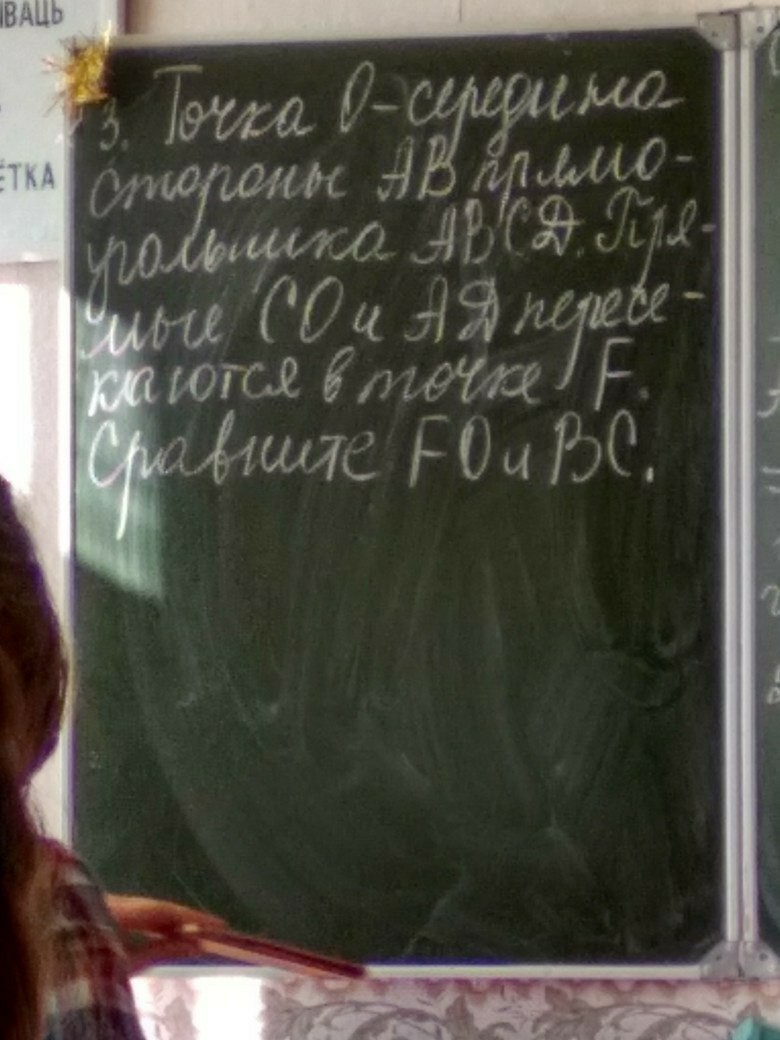 ІВАЦЬ
ЁТКА
3. Точка О-середина
стороны АВ прямо-
угольника АВСД. Пря-
мые СО и АД пересе-
каются в точке F.
Сравните FO и ВС.